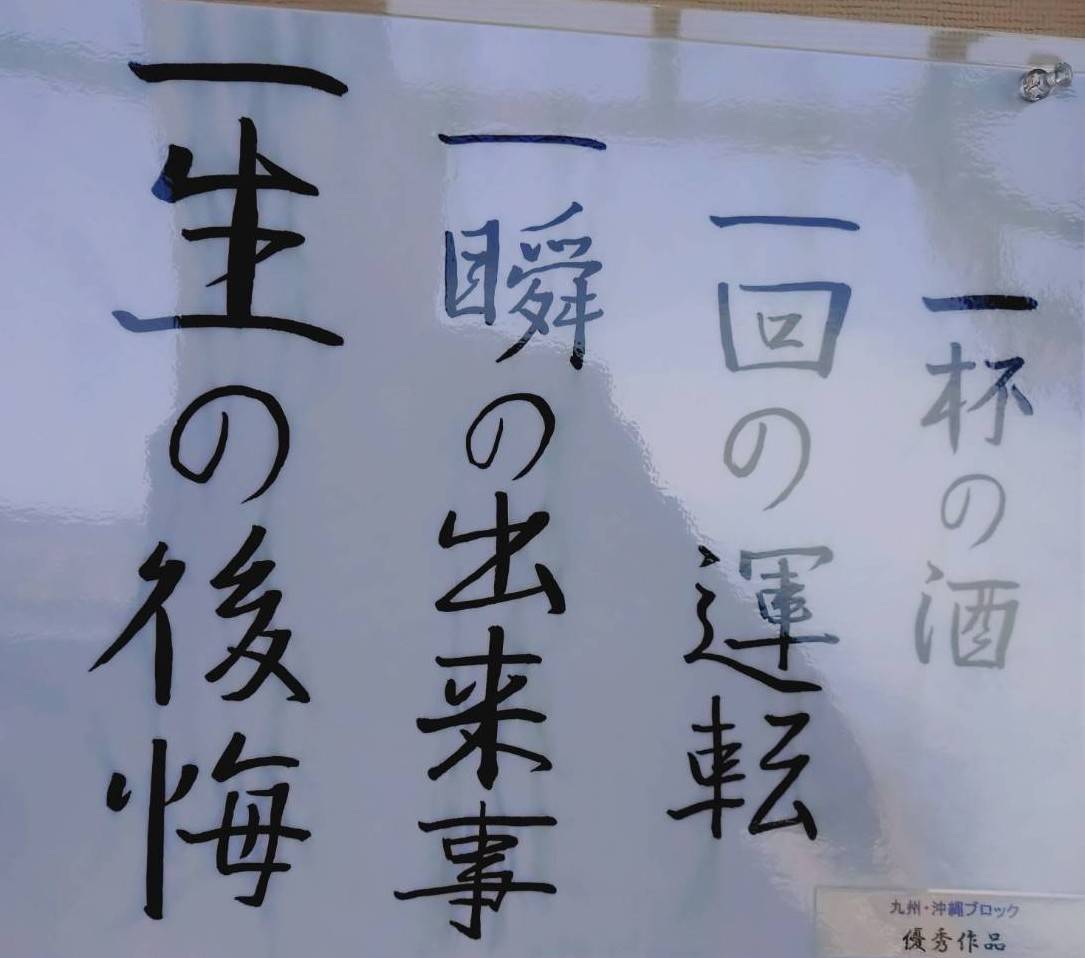 一杯の酒
一回の運転
一瞬の出来事
一生の後悔
九州・沖縄ブロック
優秀作品